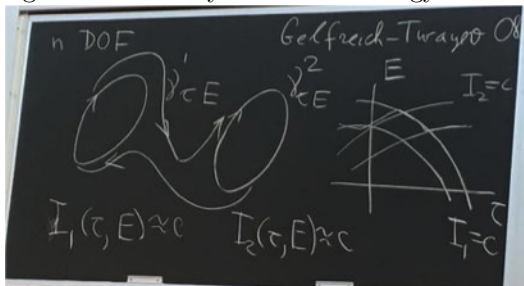 n DOF
Gelfreich-Turayev 08
γ¹τE
γ²τE
E
I₂=c
I₁(τ,E)≈c
I₂(τ,E)≈c
τ
I₁=c